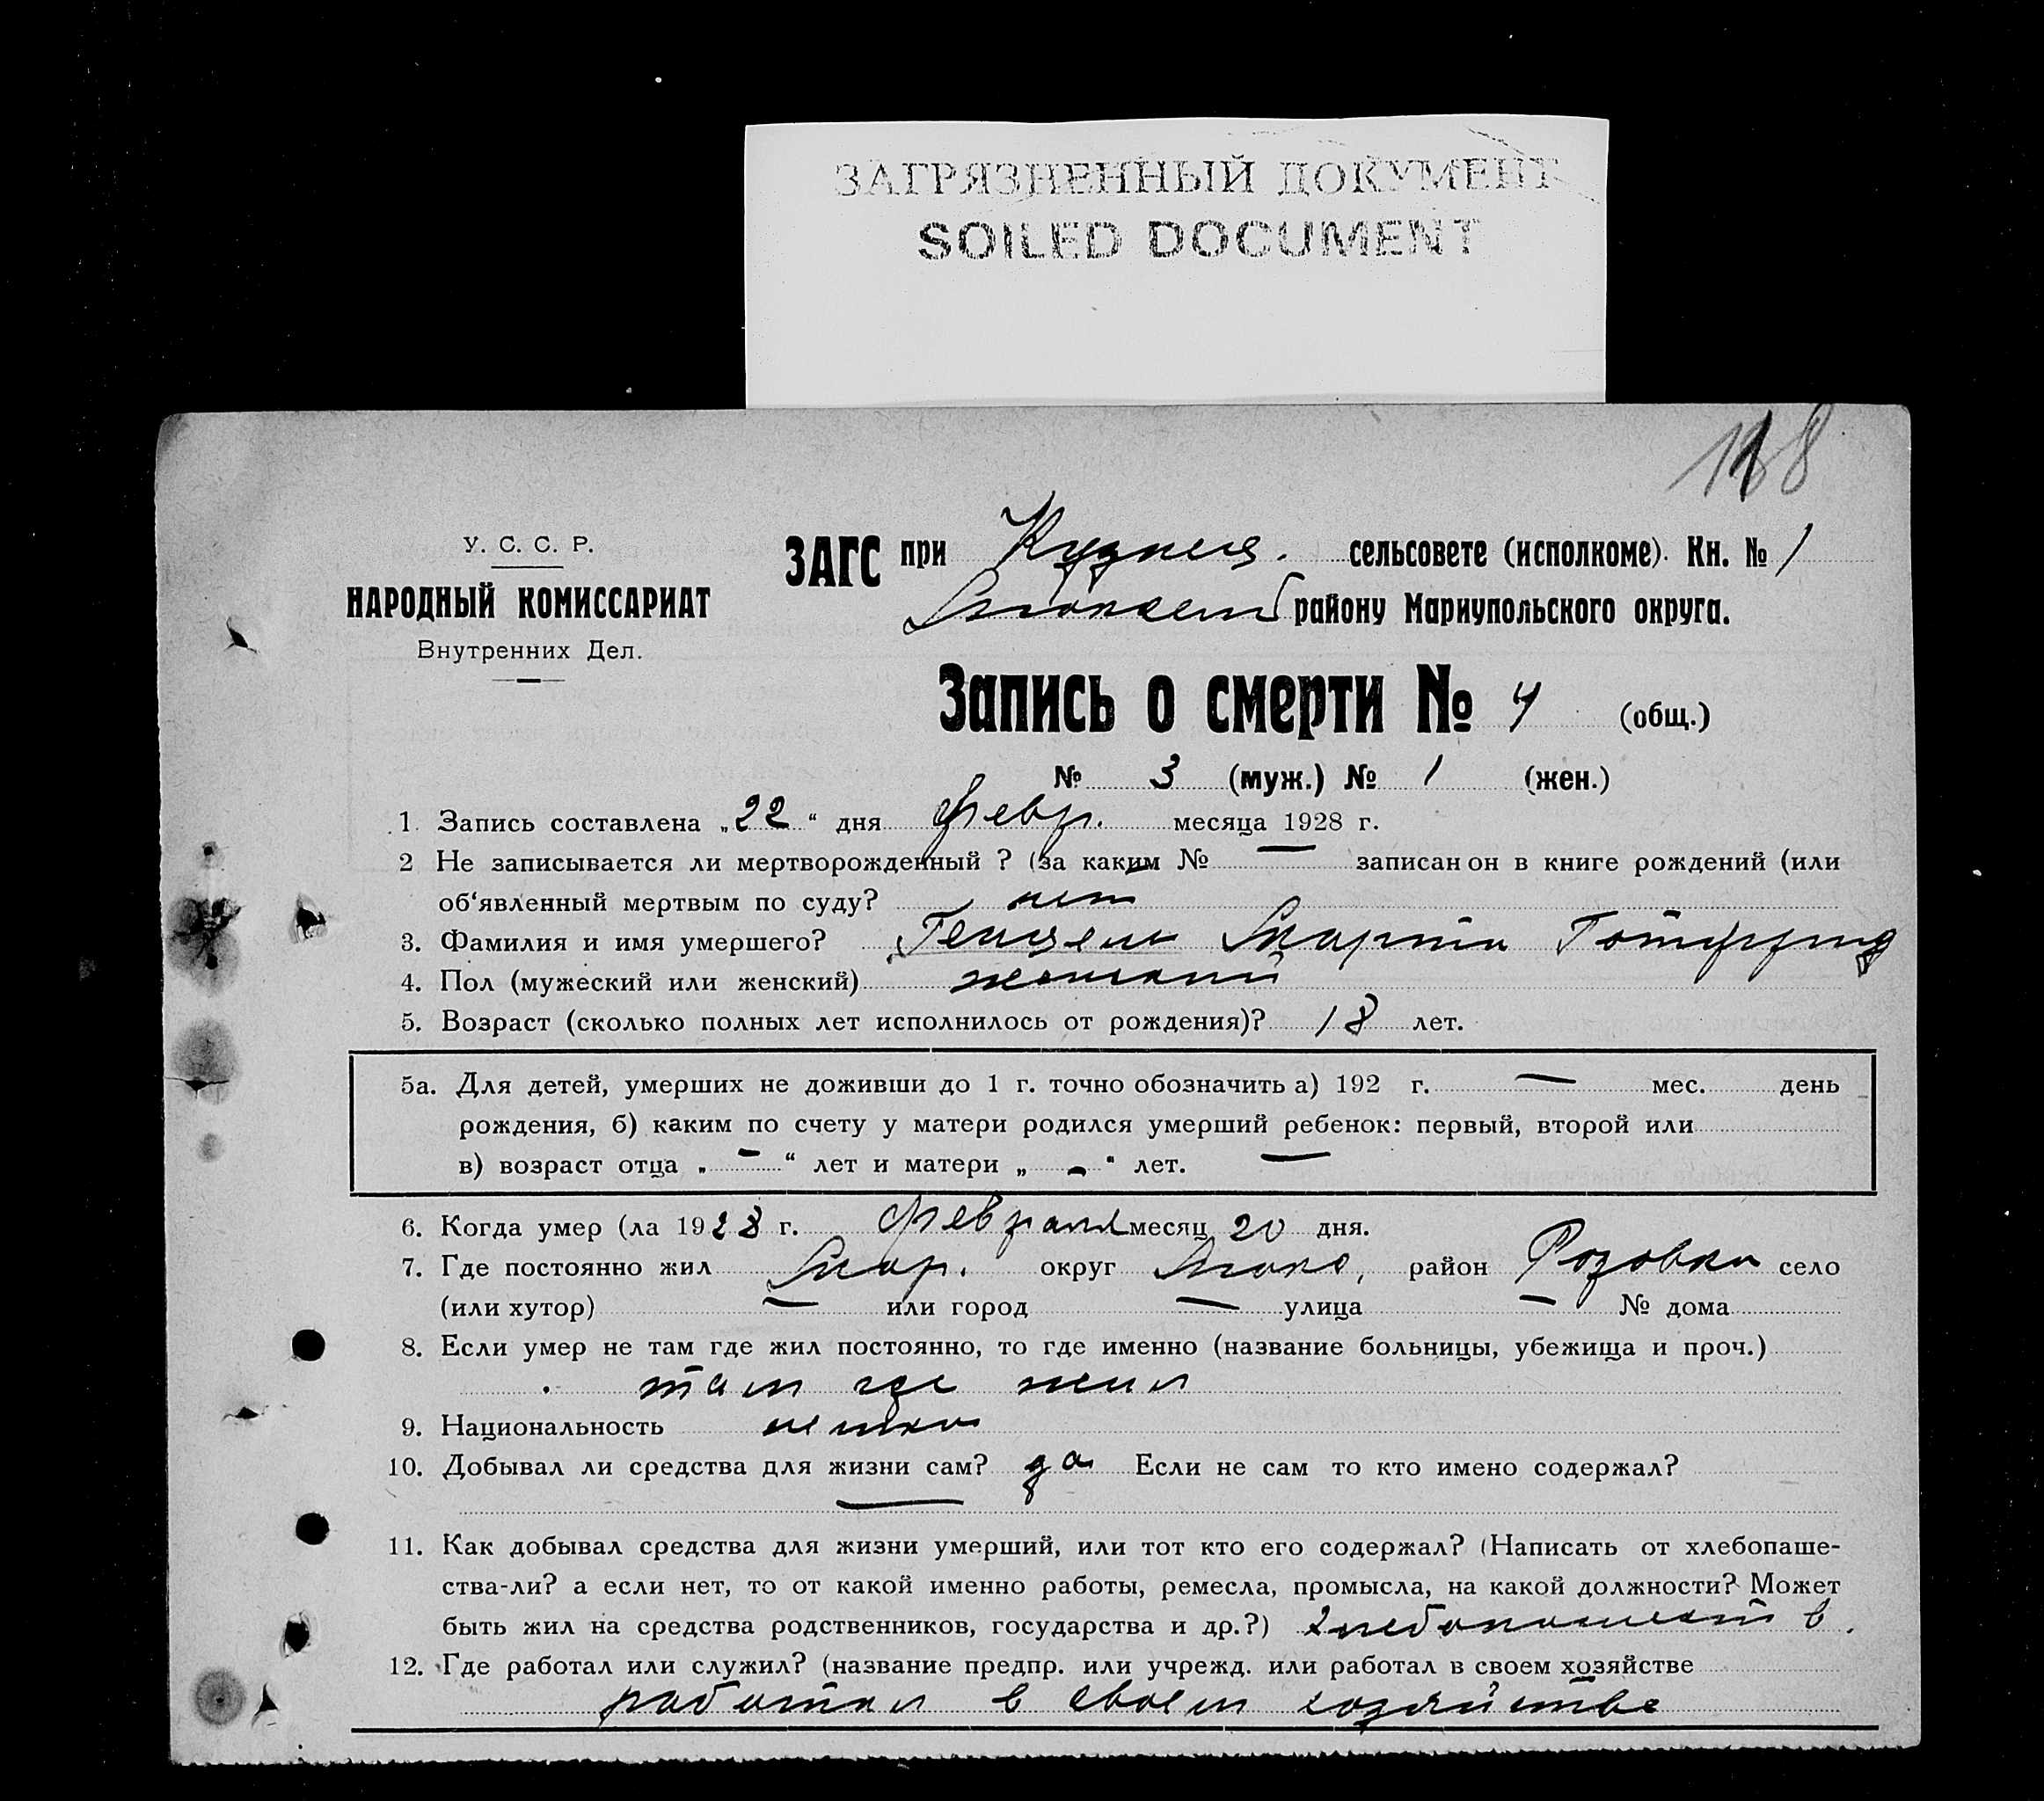 ЗАГРЯЗНЕННЫЙ ДОКУМЕНТ
SOILED DOCUMENT
У. С. С. Р.
НАРОДНЫЙ КОМИССАРИАТ
Внутренних Дел.
ЗАГС при сельсовете (исполкоме). Кн. № 1
району Мариупольского округа.
Запись о смерти № 4 (общ.)
№ 3 (муж.) № 1 (жен.)
1. Запись составлена „22“ дня февр. месяца 1928 г.
2 Не записывается ли мертворожденный ? (за каким № — записан он в книге рождений (или
об‘явленный мертвым по суду? нет
3. Фамилия и имя умершего? Марта Готфрид
4. Пол (мужеский или женский) женский
5. Возраст (сколько полных лет исполнилось от рождения)? 18 лет.
5а. Для детей, умерших не доживши до 1 г. точно обозначить а) 192 г. — мес. день
рождения, б) каким по счету у матери родился умерший ребенок: первый, второй или
в) возраст отца „ – “ лет и матери „ – “ лет. —
6. Когда умер (ла 1928 г. февраля месяц 20 дня.
7. Где постоянно жил Мар. округ район Розовка село
(или хутор) — или город — улица — № дома
8. Если умер не там где жил постоянно, то где именно (название больницы, убежища и проч.)
там где жил
9. Национальность немка
10. Добывал ли средства для жизни сам? да Если не сам то кто имено содержал?
—
11. Как добывал средства для жизни умерший, или тот кто его содержал? (Написать от хлебопаше-
ства-ли? а если нет, то от какой именно работы, ремесла, промысла, на какой должности? Может
быть жил на средства родственников, государства и др.?)
12. Где работал или служил? (название предпр. или учрежд. или работал в своем хозяйстве
работал в своем хозяйстве